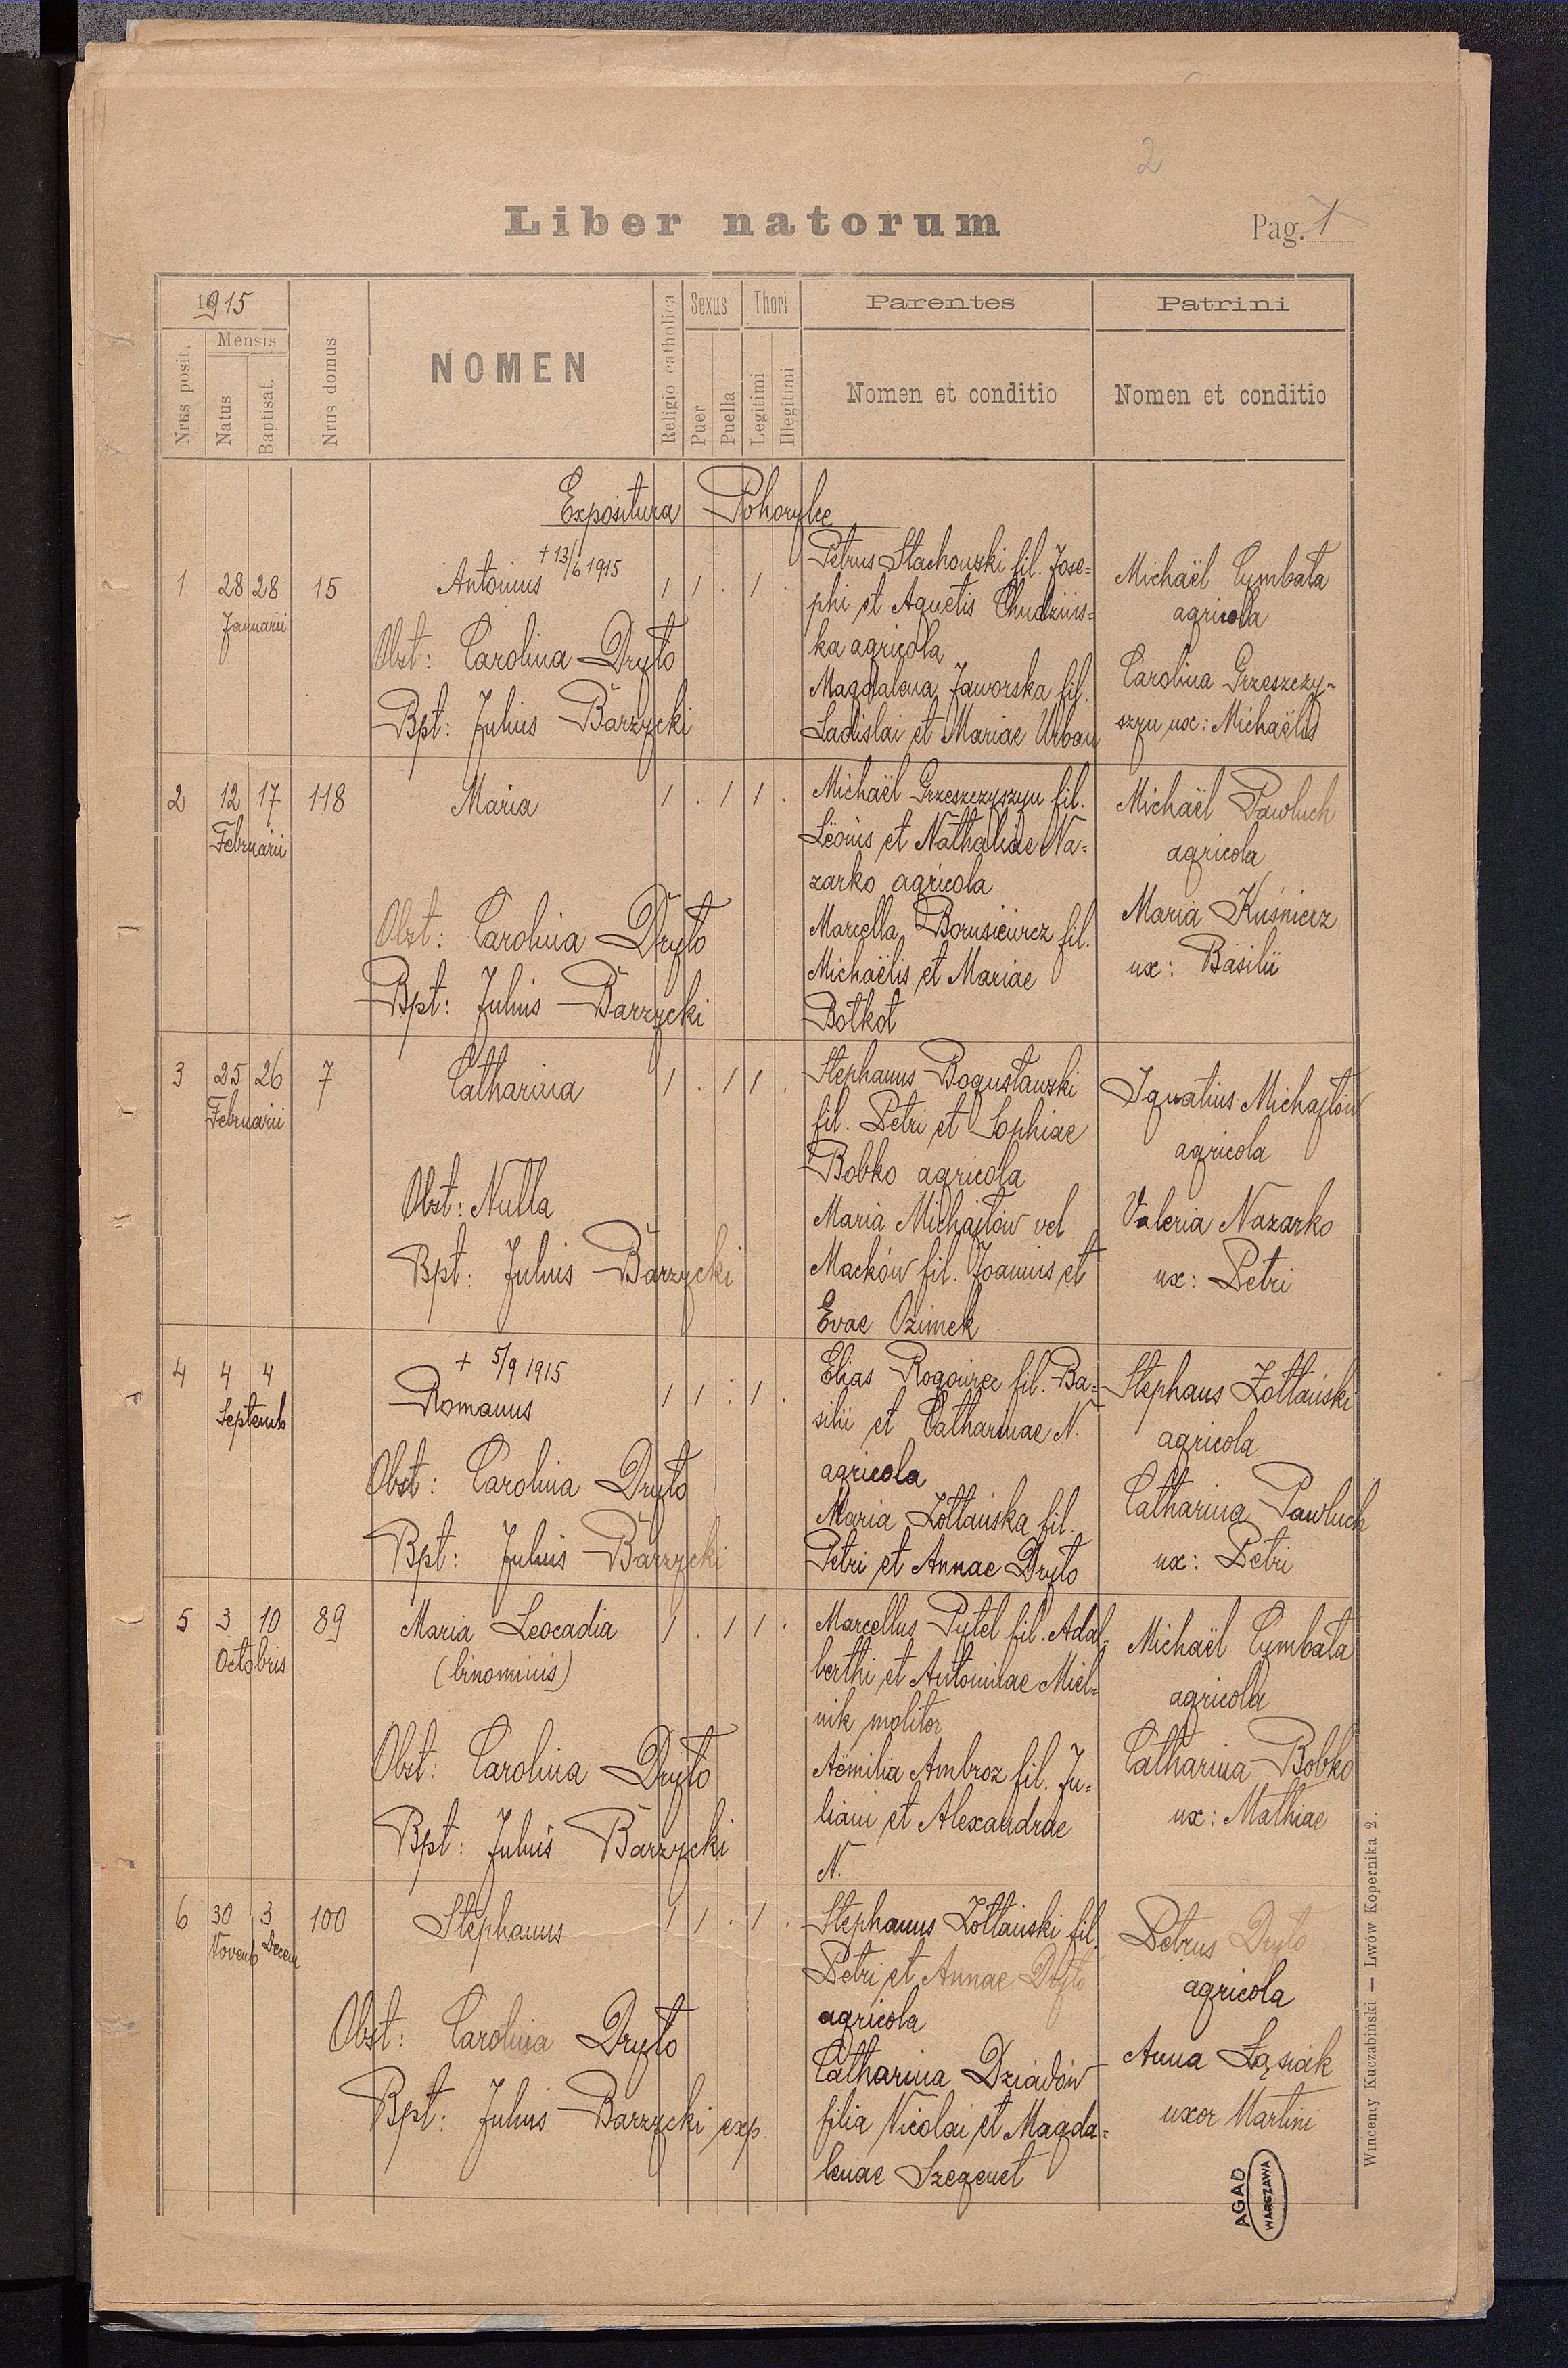 2
Liber natorum
Pag. 1
1915
Nrus posit.
Mensis
Natus
Baptisat.
Nrus domus
NOMEN
Religio catholica
Sexus
Puer
Puella
Thori
Legitimi
Illegitimi
Parentes
Nomen et conditio
Patrini
Nomen et conditio
Expositura Pohorylce
1 28 28 15
Januarii
+ 13/6 1915
Antonius
1 1 . 1 .
Obst: Carolina Dryło
Bpt: Julius Barzycki
Petrus Stachowski fil. Jose=
phi et Agnetis Chudzińs=
ka agricola
Magdalena Jaworska fil.
Ladislai et Mariae Urban
Michaël Cymbała
agricola
Carolina Grzeszczy-
szyn ux: Michaëlis
2 12 17 118
Februarii
Maria
1 . 1 1 .
Obst: Carolina Dryło
Bpt: Julius Barzycki
Michaël Grzeszczyszyn fil.
Lëonis et Nathaliae Na=
zarko agricola
Marcella Borusiewicz fil.
Michaëlis et Mariae
Botkot
Michaël Pawluch
agricola
Maria Kuśnierz
ux: Basilii
3 25 26 7
Februarii
Catharina
1 . 1 1 .
Obst: Nulla
Bpt: Julius Barzycki
Stephanus Bogusławski
fil. Petri et Sophiae
Bobko agricola
Maria Michajłów vel
Maćków fil. Joannis et
Evae Ozimek
Ignatius Michajłów
agricola
Valeria Nazarko
ux: Petri
4 4 4
Septemb
+ 5/9 1915
Romanus
1 1 : 1 .
Obst: Carolina Dryło
Bpt: Julius Barzycki
Elias Rogowiec fil. Ba=
silii et Catharinae N.
agricola
Maria Żółtańska fil.
Petri et Annae Dryło
Stephans Żółtański
agricola
Catharina Pawluch
ux: Petri
5 3 10 89
Octobris
Maria Leocadia
(binominis)
1 . 1 1 .
Obst: Carolina Dryło
Bpt: Julius Barzycki
Marcellus Pytel fil. Adal=
berthi et Antoninae Miel=
nik molitor
Aëmilia Ambroz fil. Ju=
liani et Alexandrae
N.
Michaël Cymbała
agricola
Catharina Bobko
ux: Mathiae
6 30 3 100
Novemb Decem
Stephanus
1 1 . 1 .
Obst: Carolina Dryło
Bpt: Julius Barzycki exp.
Stephanus Żółtański fil.
Petri et Annae Dryło
agricola
Catharina Dziadów
filia Nicolai et Magda=
lenae Szegenet
Petrus Dryło
agricola
Anna Łąsiak
uxor Martini
Wincenty Kuczabiński — Lwów Kopernika 2.
AGAD
WARSZAWA